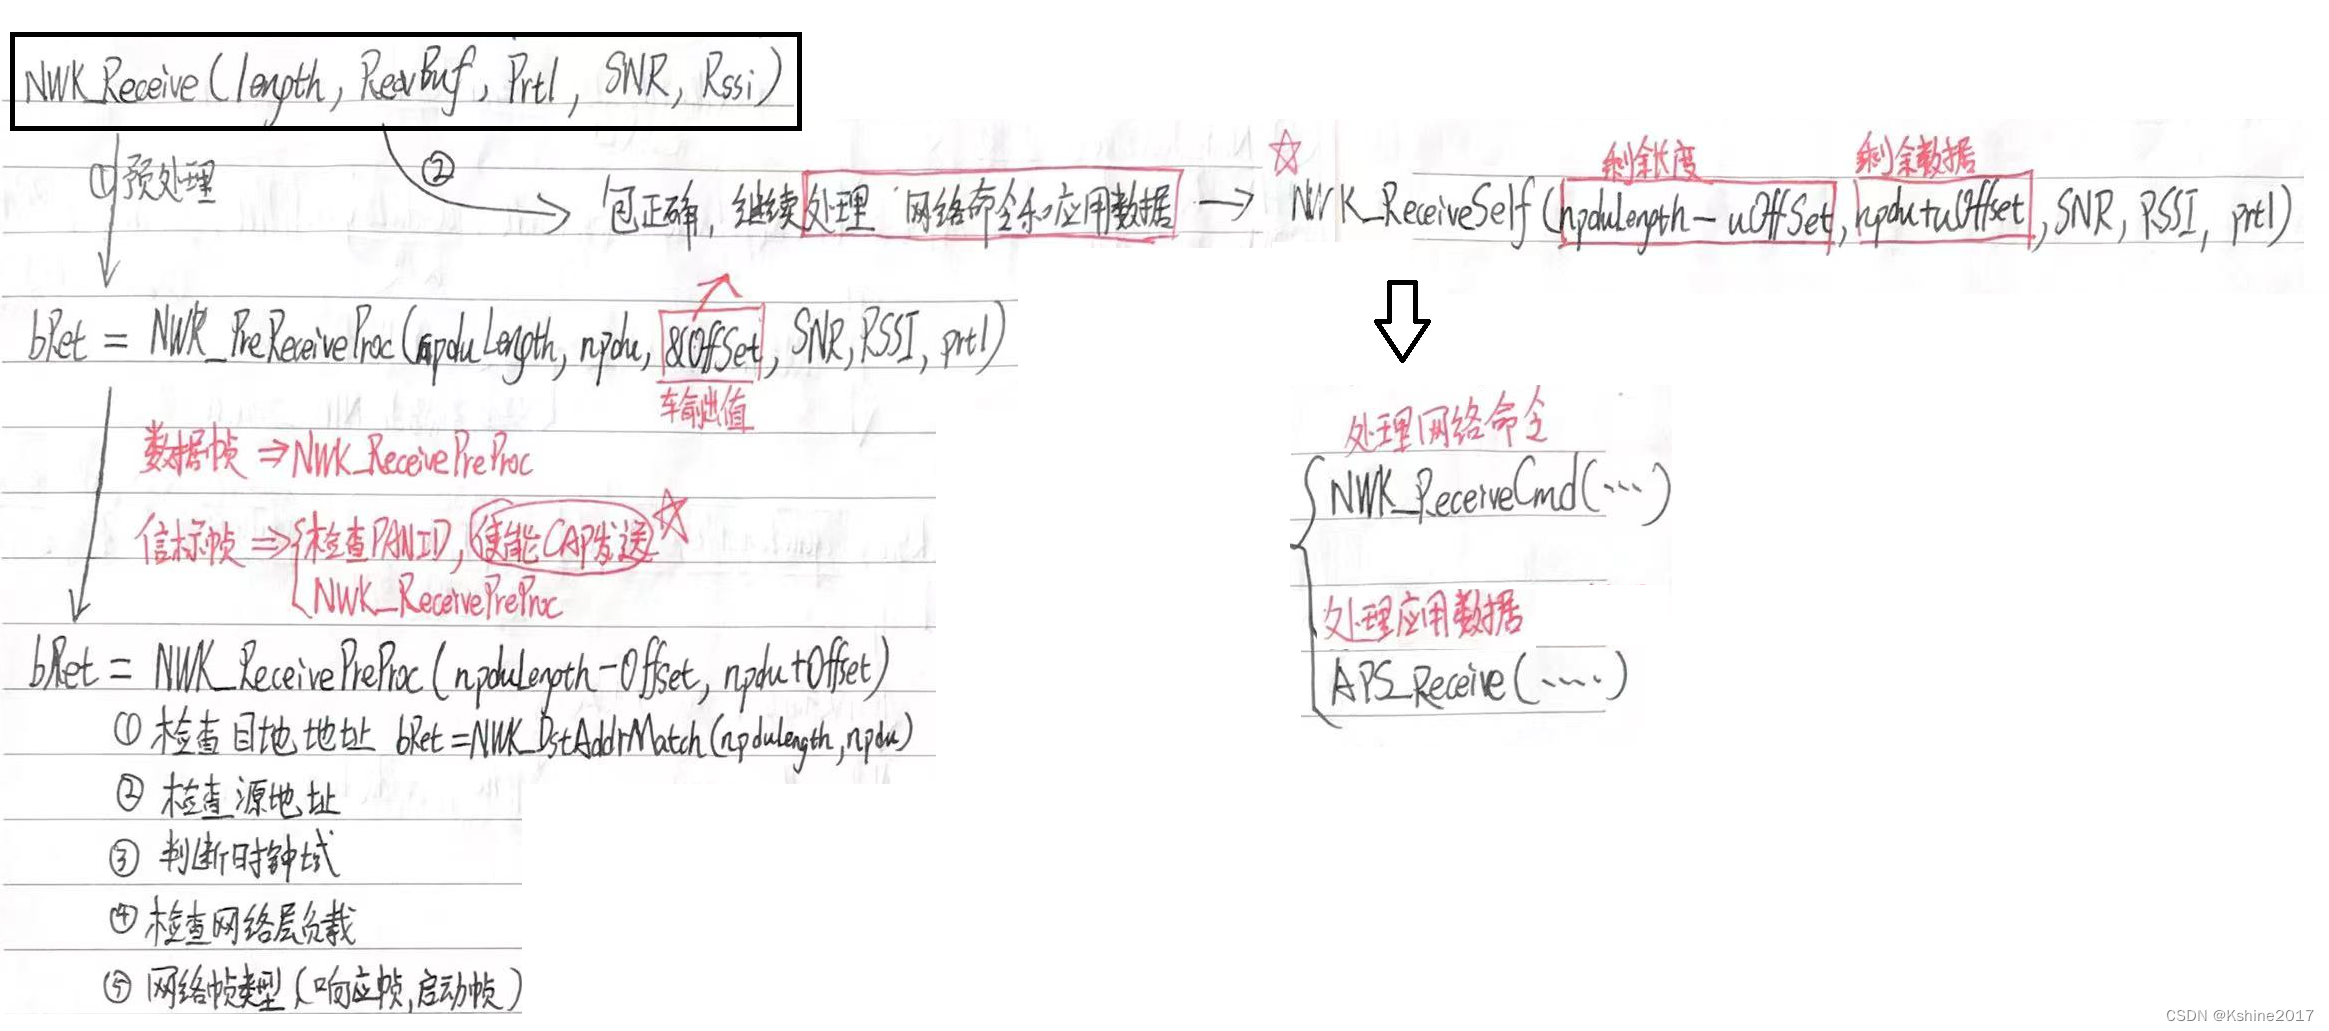 NWK_Receive(length, RecvBuf, Prtl, SNR, Rssi)
①预处理
②
包正确, 继续处理 网络命令和应用数据 → ☆ NWK_ReceiveSelf(npduLength-uOffSet, npdu+uOffset, SNR, RSSI, prtl)
剩余长度 剩余数据
bRet = NWK_PreReceiveProc(npduLength, npdu, &OffSet, SNR, RSSI, prtl)
输出值
数据帧 ⇒ NWK_ReceivePreProc
信标帧 ⇒ {检查PANID, 使能CAP发送 ☆
NWK_ReceivePreProc
bRet = NWK_ReceivePreProc(npduLength-Offset, npdu+Offset)
① 检查目地地址 bRet=NWK_DstAddrMatch(npduLength, npdu)
② 检查源地址
③ 判断时钟域
④ 检查网络层负载
⑤ 网络帧类型(响应帧,启动帧)
处理网络命令
NWK_ReceiveCmd(...)
处理应用数据
APS_Receive(....)
CSDN @Kshine2017